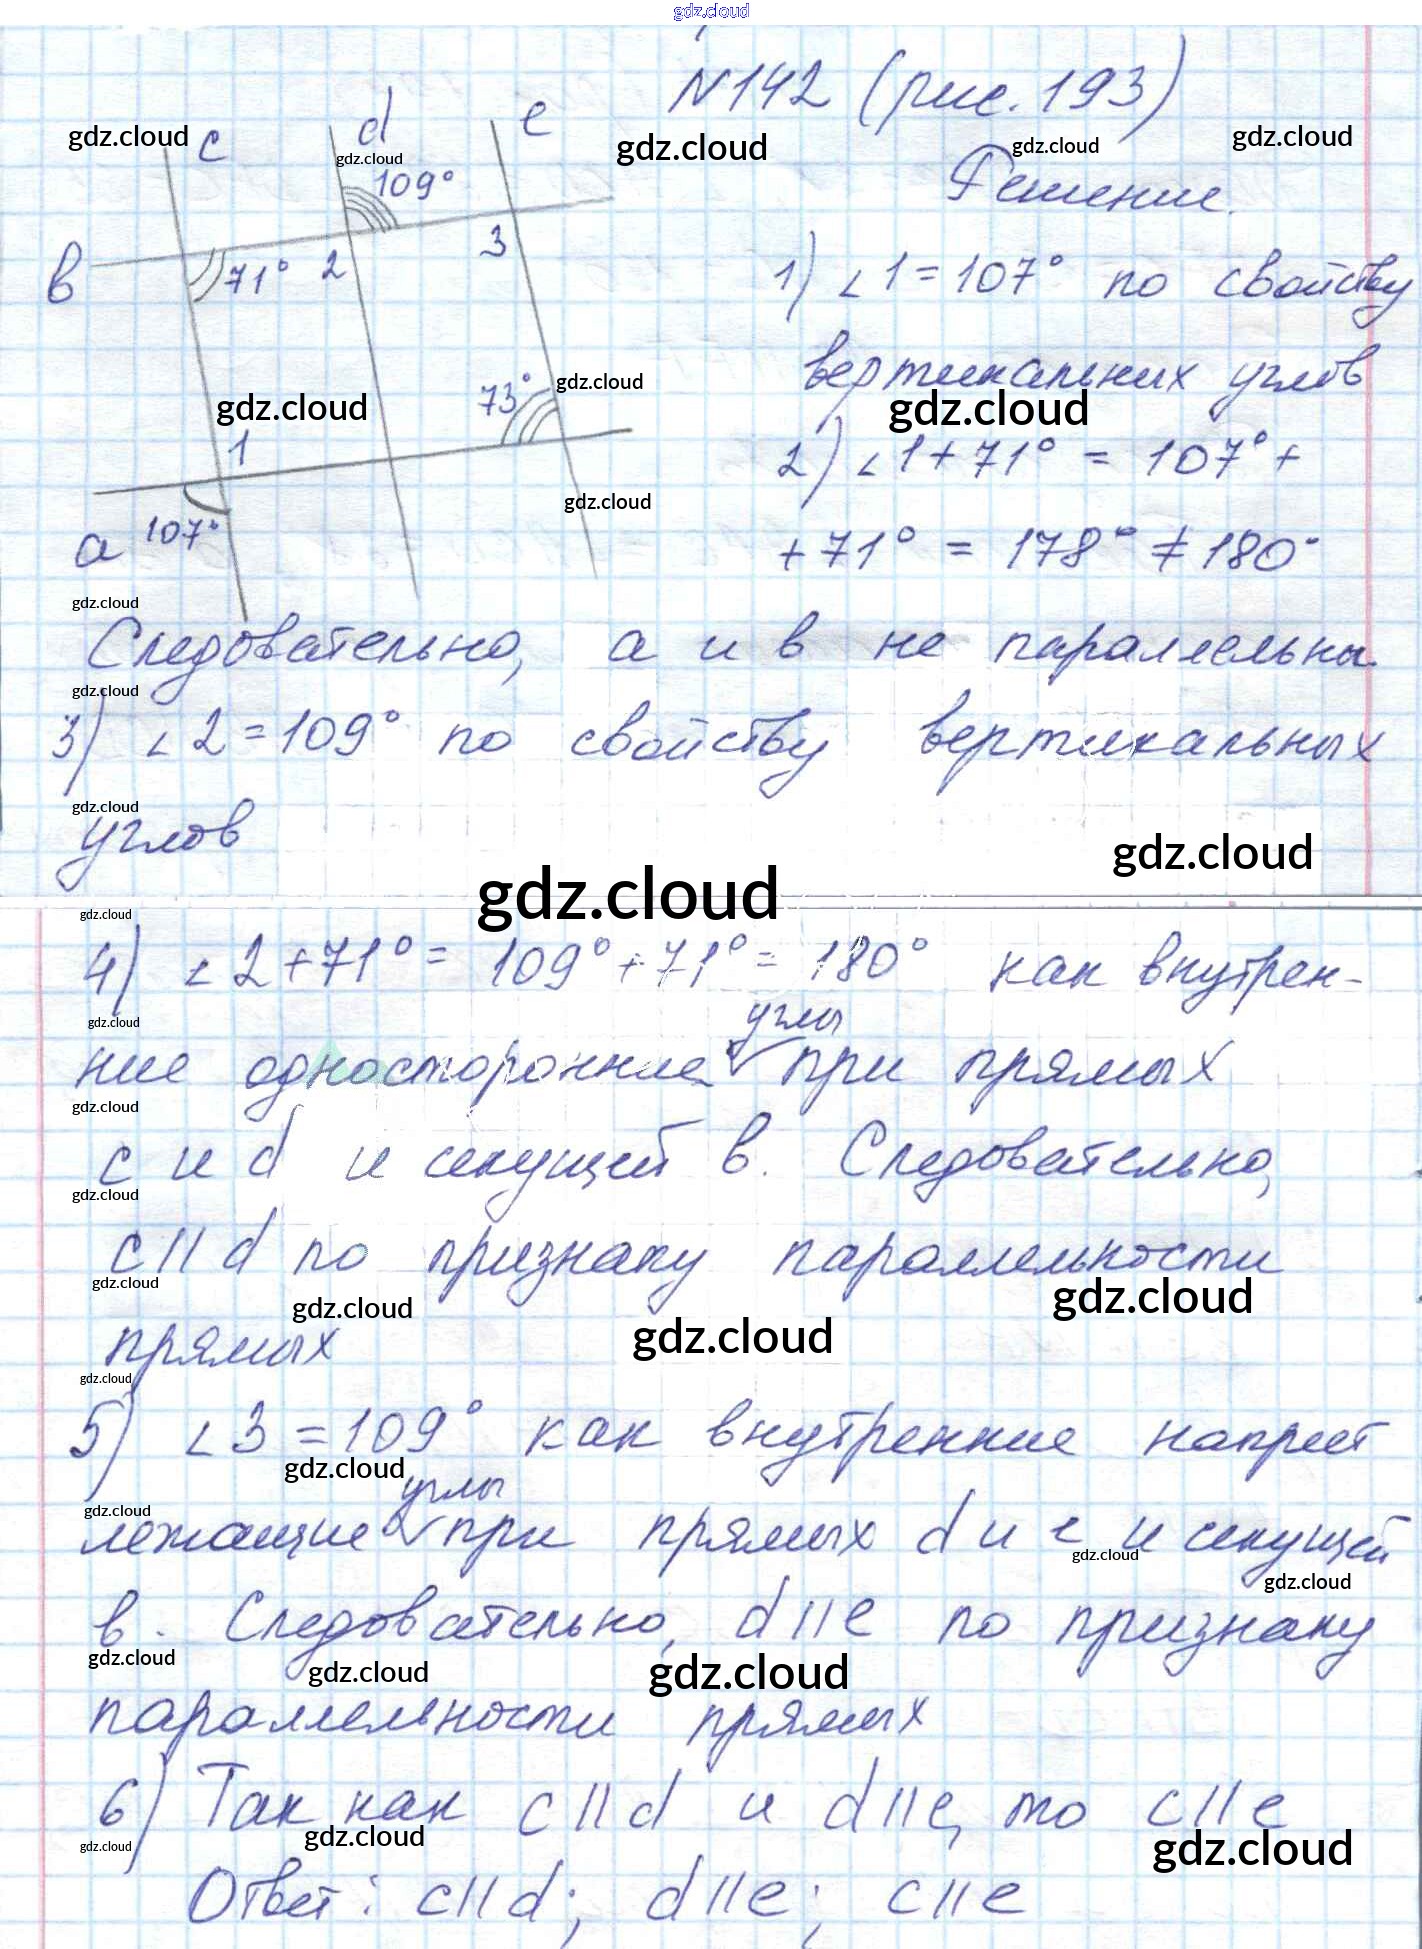 gdz.cloud
N142 (рис. 193)
gdz.cloud c gdz.cloud d e gdz.cloud gdz.cloud gdz.cloud
109° Решение.
в 71° 2 3 1) ∠1 = 107° по свойству
73° gdz.cloud вертикальных углов
gdz.cloud gdz.cloud
1 2) ∠1 + 71° = 107° +
gdz.cloud
a 107° + 71° = 178° ≠ 180°
gdz.cloud
Следовательно, а и в не параллельны.
gdz.cloud
3) ∠2 = 109° по свойству вертикальных
gdz.cloud
углов gdz.cloud
gdz.cloud
gdz.cloud
4) ∠2 + 71° = 109° + 71° = 180° как внутрен-
gdz.cloud углы
ние односторонние при прямых
gdz.cloud
с и d и секущей в. Следовательно,
gdz.cloud
c || d по признаку параллельности
gdz.cloud gdz.cloud gdz.cloud gdz.cloud
прямых
gdz.cloud
5) ∠3 = 109° как внутренние накрест
gdz.cloud углы
gdz.cloud
лежащие при прямых d и e и секущей
gdz.cloud gdz.cloud
в. Следовательно, d || e по признаку
gdz.cloud gdz.cloud gdz.cloud
параллельности прямых
6) Так как c || d и d || e, то c || e
gdz.cloud gdz.cloud gdz.cloud
Ответ: c || d; d || e; c || e